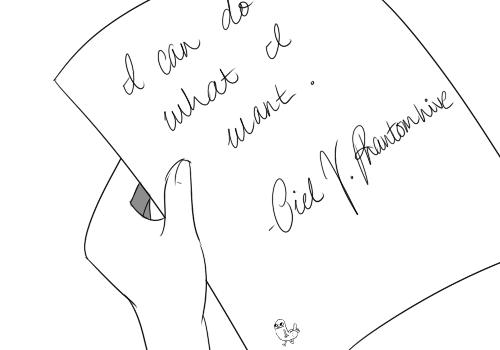 I can do
what I
want.
-Ciel V. Phantomhive